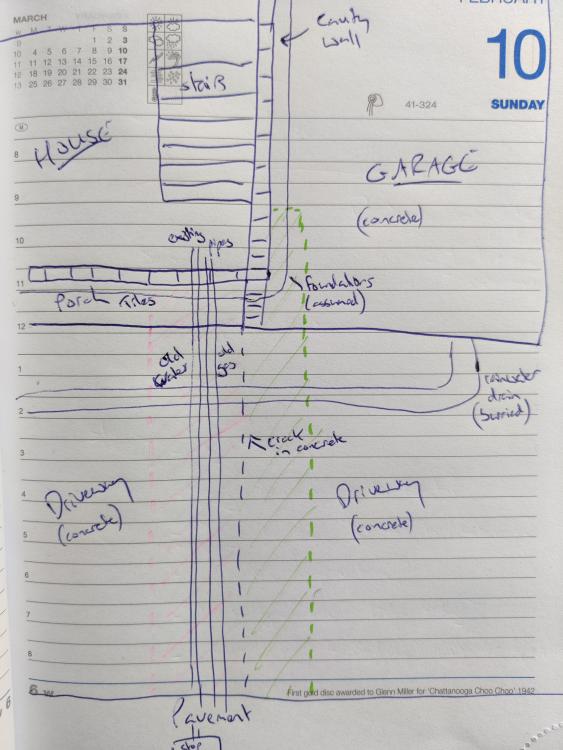 FEBRUARY
10
SUNDAY
41-324
MARCH
W M T W T F S S
9 1 2 3
10 4 5 6 7 8 9 10
11 11 12 13 14 15 16 17
12 18 19 20 21 22 23 24
13 25 26 27 28 29 30 31
cavity
wall
stairs
HOUSE
GARAGE
(concrete)
8
9
10
11
12
1
2
3
4
5
6
7
8
existing pipes
Porch Tiles
foundations
(assumed)
old
water
old
gas
rainwater
drain
(burried)
crack
in concrete
Driveway
(concrete)
Driveway
(concrete)
6
First gold disc awarded to Glenn Miller for 'Chattanooga Choo Choo' 1942
Pavement
stop